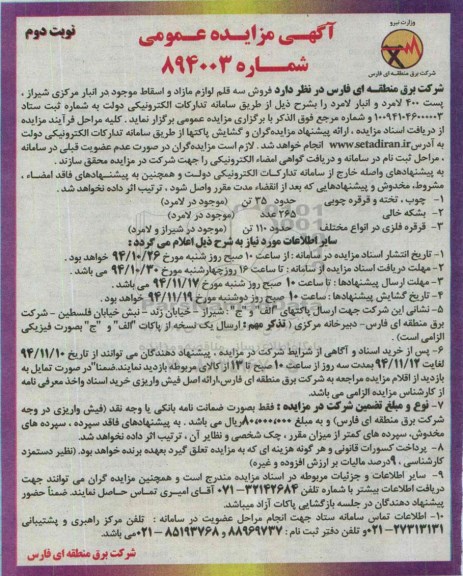 وزارت نیرو
شرکت برق منطقه ای فارس
آگهی مزایده عمومی
نوبت دوم
شماره ۸۹۴۰۰۳
شرکت برق منطقه ای فارس در نظر دارد فروش سه قلم لوازم مازاد و اسقاط موجود در انبار مرکزی شیراز ،
پست ۴۰۰ لامرد و انبار لامرد را بشرح ذیل از طریق سامانه تدارکات الکترونیکی دولت به شماره ثبت ستاد
۱۰۰۹۴۱۰۴۶۰۰۰۰۰۳ و شماره مرجع فوق الذکر با برگزاری مزایده عمومی برگزار نماید . کلیه مراحل فرآیند مزایده
از دریافت اسناد مزایده ، ارائه پیشنهاد مزایده‌گران و گشایش پاکتها از طریق سامانه تدارکات الکترونیکی دولت
به آدرس www.setadiran.ir انجام خواهد شد . لازم است مزایده‌گران در صورت عدم عضویت قبلی در سامانه
، مراحل ثبت نام در سامانه و دریافت گواهی امضاء الکترونیکی را جهت شرکت در مزایده محقق سازند .
به پیشنهادهای واصله خارج از سامانه تدارکات الکترونیکی دولت و همچنین به پیشنهادهای فاقد امضاء ،
مشروط، مخدوش و پیشنهادهایی که بعد از انقضاء مدت مقرر واصل شود ، ترتیب اثر داده نخواهد شد .
۱- چوب ، تخته و قرقره چوبی حدود ۳۵ تن (موجود در لامرد)
۲- بشکه خالی ۲۶۵ عدد (موجود در لامرد)
۳- قرقره فلزی در انواع مختلف حدود ۱۱۰ تن (موجود در شیراز و لامرد)
سایر اطلاعات مورد نیاز به شرح ذیل اعلام می گردد :
۱- تاریخ انتشار اسناد مزایده در سامانه : از ساعت ۱۰ صبح روز شنبه مورخ ۹۴/۱۰/۲۶ خواهد بود .
۲- مهلت دریافت اسناد مزایده از سامانه : تا ساعت ۱۶ روز چهارشنبه مورخ ۹۴/۱۰/۳۰ می باشد .
۳- مهلت ارسال پیشنهادها : تا ساعت ۱۰ صبح روز شنبه مورخ ۹۴/۱۱/۱۷ می باشد .
۴- تاریخ گشایش پیشنهادها : ساعت ۱۰ صبح روز دوشنبه مورخ ۹۴/۱۱/۱۹ خواهد بود .
۵- نشانی این شرکت جهت ارسال پاکتهای "الف" و "ج" : شیراز - خیابان زند - نبش خیابان فلسطین - شرکت
برق منطقه ای فارس- دبیرخانه مرکزی ( تذکر مهم : ارسال یک نسخه از پاکات "الف" و "ج" بصورت فیزیکی
الزامی است) .
۶- پس از خرید اسناد و آگاهی از شرایط شرکت در مزایده ، پیشنهاد دهندگان می توانند از تاریخ ۹۴/۱۱/۱۰
لغایت ۹۴/۱۱/۱۲ بمدت سه روز از ساعت ۱۰ صبح تا ۱۳ از کالای مربوطه بازدید نمایند.ضمنا"در صورت تمایل به
بازدید از اقلام مزایده مراجعه به شرکت برق منطقه ای فارس،ارائه اصل فیش واریزی خرید اسناد واخذ معرفی نامه
از کارشناس مزایده الزامی می باشد.
۷- نوع و مبلغ تضمین شرکت در مزایده : فقط بصورت ضمانت نامه بانکی یا وجه نقد (فیش واریزی در وجه
شرکت برق منطقه ای فارس) و به مبلغ ۸۰،۰۰۰،۰۰۰ریال می باشد . به پیشنهادهای فاقد سپرده ، سپرده های
مخدوش، سپرده های کمتر از میزان مقرر ، چک شخصی و نظایر آن ، ترتیب اثر داده نخواهد شد.
۸- پرداخت کسورات قانونی و هر گونه هزینه ای که به مزایده تعلق گیرد بعهده برنده خواهد بود. (نظیر دستمزد
کارشناسی ، ۹درصد مالیات بر ارزش افزوده و غیره)
۹- سایر اطلاعات و جزئیات مربوطه در اسناد مزایده مندرج است و همچنین مزایده گران می توانند جهت
دریافت اطلاعات بیشتر با شماره تلفن ۳۲۱۴۲۶۸۳-۰۷۱ آقای امیری تماس حاصل نمایند. ضمناً حضور
پیشنهاد دهندگان در جلسه بازگشایی پاکات آزاد میباشد.
۱۰- اطلاعات تماس سامانه ستاد جهت انجام مراحل عضویت در سامانه : تلفن مرکز راهبری و پشتیبانی
۲۷۳۱۳۱۳۱-۰۲۱و تلفن دفتر ثبت نام : ۸۸۹۶۹۷۳۷ و ۸۵۱۹۳۷۶۸-۰۲۱ می باشد.
شرکت برق منطقه ای فارس